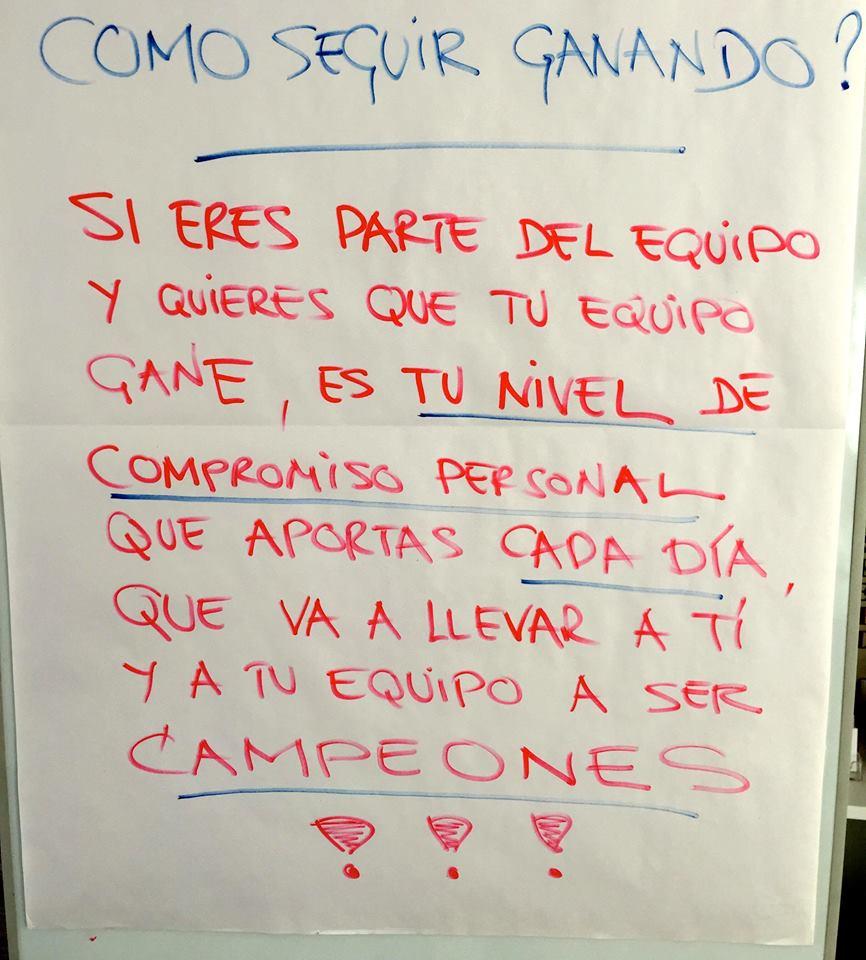 COMO SEGUIR GANANDO?
SI ERES PARTE DEL EQUIPO
Y QUIERES QUE TU EQUIPO
GANE, ES TU NIVEL DE
COMPROMISO PERSONAL
QUE APORTAS CADA DÍA,
QUE VA A LLEVAR A TÍ
Y A TU EQUIPO A SER
CAMPEONES
!!!